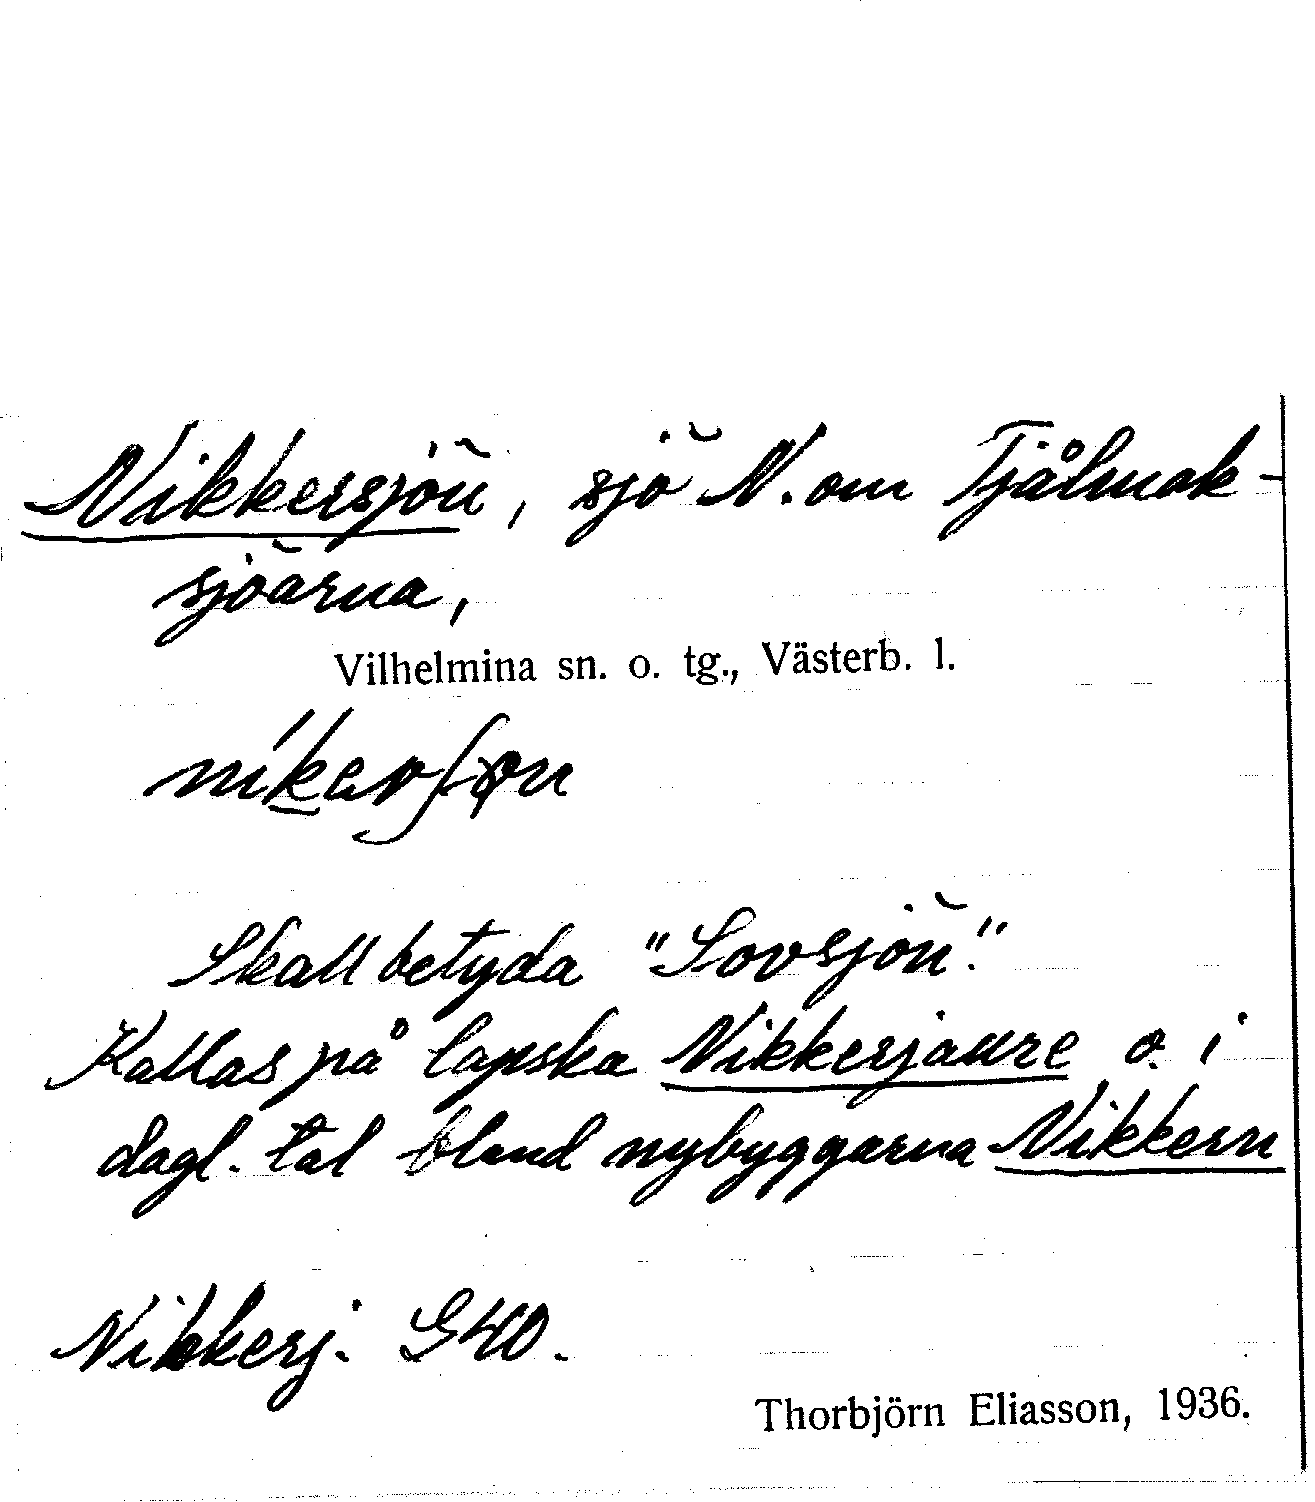 Nikkersjön, sjö N. om Tjålmak-
sjöarna,
Vilhelmina sn. o. tg., Västerb. l.
Skall betyda "Sovsjön".
Kallas på lapska Nikkerjaure o. i
dagl. tal bland nybyggarna Nikkern
Nikkerj. G40.
Thorbjörn Eliasson, 1936.